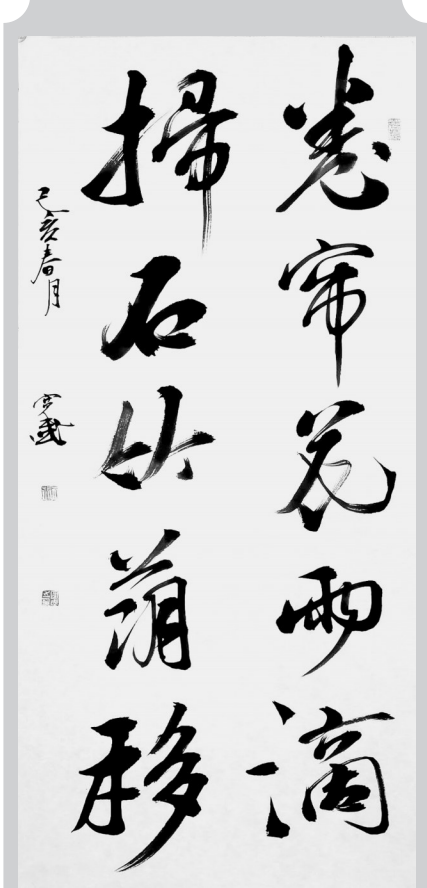 卷帘花雨滴
掃石竹荫移
己亥春月